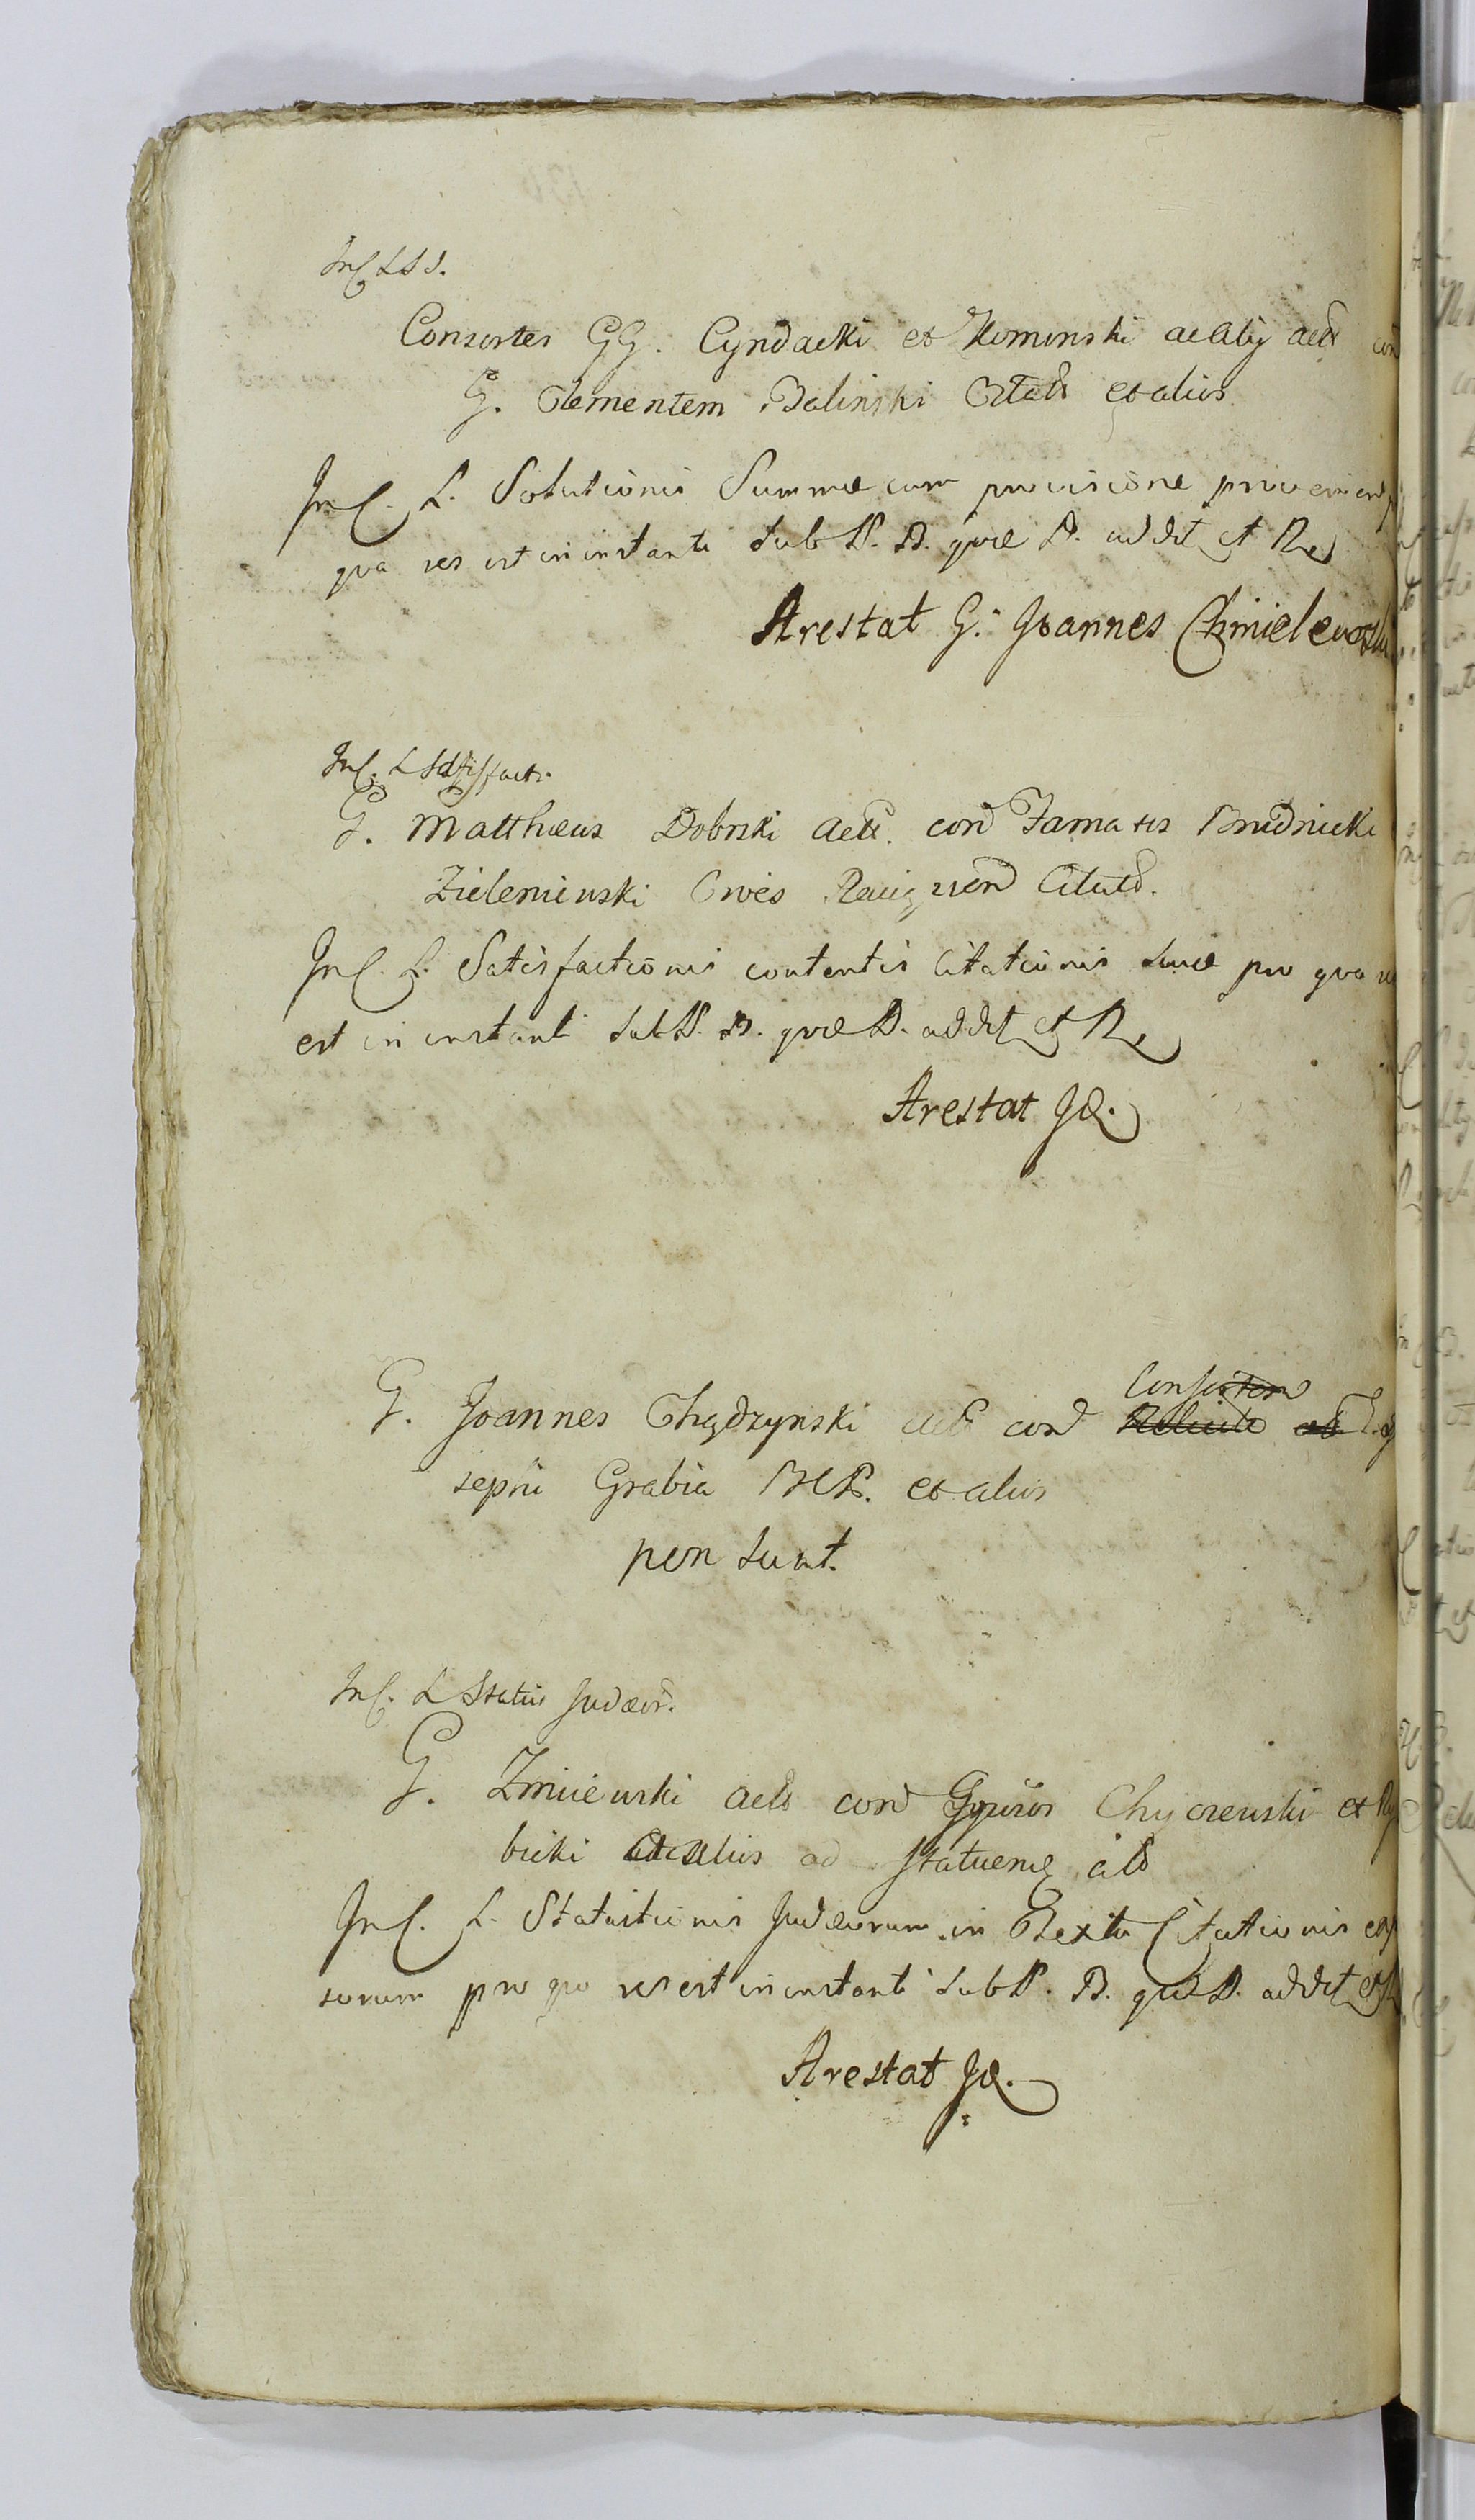 Inf. L S S.
Consortes GG. Cyndacki et Kominski ac alij act con
G. Clementem Balinski Citat et alios
Inf. L. Solutionis Summae cum provisione proveniend
qua res est in instanti sub P. B. quae P. addit et R
Arestat G. Joannes Chmielewski
Inf. L Satisfact.
G. Matthaeus Dobrski act. con Famatos Brudnicki
Zieleniewski Cives Citatt.
Inf. L. Satisfactionis contentis Citationis suae pro qua r
est in instanti sub P. B. quae P. addit et R
Arestat Id.
Consorten
G. Joannes Chądzynski act con
sephi Grabia et alios
pen sunt.
Inf. L Statuit Judaeor.
G. Zmiiewski act con Ggnsos Chyczewski et Ry
bicki et alios ad statuend cit
Inf. L. Statuitionis Judaeorum in Textu Citationis exp
sorum pro quo res est in instanti sub P. B. quae P. addit et R
Arestat Id.